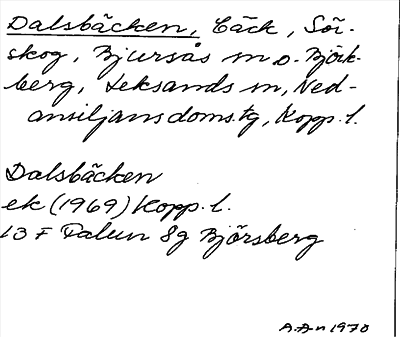 Dalsbäcken, bäck, Sör-
skog, Bjursås sn o. Björk-
berg, Leksands sn, Ned-
ansiljans doms.tg, Kopp. l.
Dalsbäcken
ek (1969) Kopp. l.
13 F Falun 8g Björsberg
A.A-n 1970